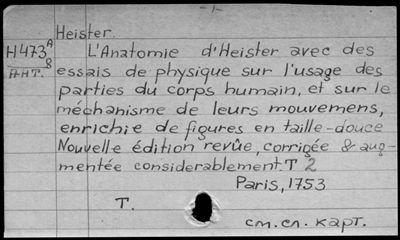 - 1 -
Heister.
H473 A/8 L'Anatomie d'Heister avec des
АНТ. essais de physique sur l'usage des
parties du corps humain, et sur le
méchanisme de leurs mouvemens,
enrichie de figures en taille-douce
Nouvelle édition revûe, corrigée & aug-
mentée considerablement. T 2
Paris, 1753
T.
см. сл. карт.